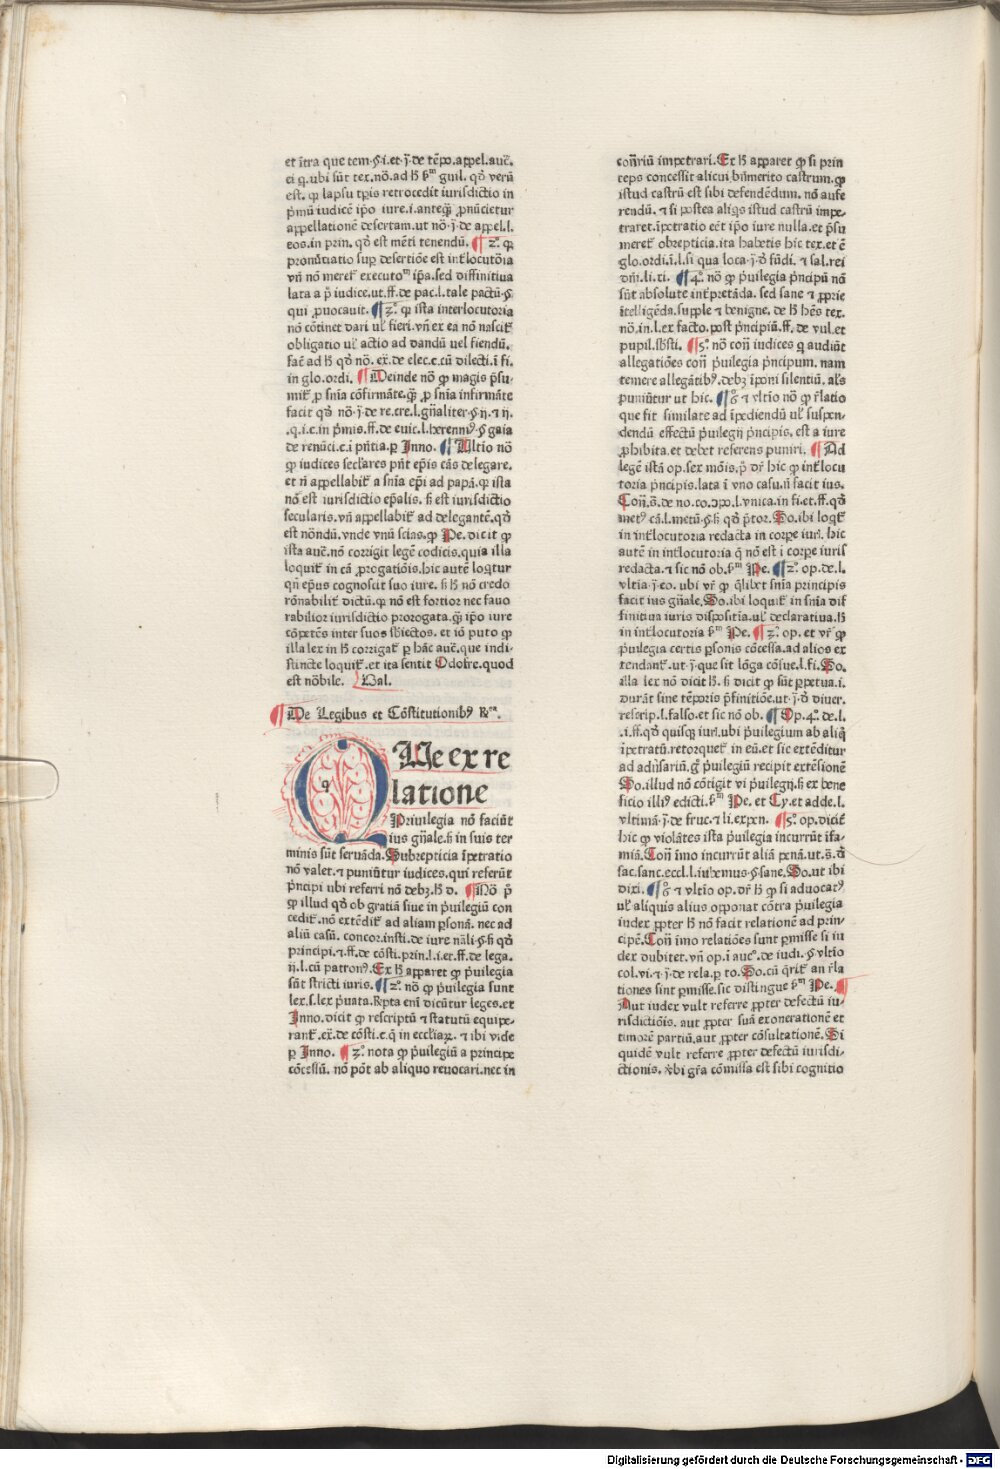 et ĩtra que tem·§·i·et·ỹ·de tẽpo.appel.auc̃.
ci q.ubi sũt tex.nõ.ad hͦ ẜᵐ guil. qđ verũ
est. ꝙ lapsu tꝑis retrocedit iurisdictio in
pͥmũ iudicẽ ip̃o iure.i.anteq̃ꝫ ꝓnũcietur
appellationẽ desertam.ut nõ·ỹ·de appel.l.
eos.in prin. qđ est mẽti tenendũ. ¶ 2°. ꝙ
pronũtiatio suꝑ desertiõe est int̾locutõia
vñ nõ meret̾ executoᵐ ip̃a.sed diffinitiua
lata a p̃ iudice.ut.ff.de pac.l.tale pactũ·§
qui ꝓuocauit. ¶ 3°. ꝙ ista interlocutoria
nõ cõtinet dari ul̾ fieri.vñ ex ea nõ nascit̾
obligatio ul̾ actio ad dandũ uel fiendũ.
fac̃ ad hͦ qđ nõ. ex̃.de elec.c.cũ dilecti.ĩ fi.
in glo.ordi. ¶ Deinde nõ ꝙ magis p̃su-
mit̾ ꝑ snĩa cõfirmãte.q̃ꝫ ꝑ snĩa infirmãte
facit qđ nõ·ỹ·de re.cre.l.gñaliter·§·ij.⁊ ij.
.q.i.c.in pͥmis.ff.de euic.l.herenniꝰ·§ gaia
de renũci.c.i pñtia.ꝑ Inno. ¶ Vltĩo nõ
ꝙ iudices seclãres pñt ep̃is cãs delegare.
et ñ appellabit̾ a snĩa ep̃i ad papã.ꝙ ista
nõ est iurisdictio ep̃alis. ẜ est iurisdictio
secularis. vñ appellabit̾ ad delegantẽ.qđ
est nõndũ. vnde vnũ scias.ꝙ Pe. dicit ꝙ
ista auc̃.nõ corrigit legẽ codicis.quia illa
loquit̾ in cã ꝓrogatiõis.hic autẽ loqͥtur
qñ ep̃us cognoscit suo iure. ẜ hͦ nõ credo
rõnabilit̾ dictũ.ꝙ nõ est fortior nec fauo
rabilior iurisdictio prorogata.q̃ꝫ ip̃o iure
cõpetẽs inter suos sb̾iectos. et iõ puto ꝙ
illa lex in hͦ corrigat̾ ꝑ hãc auc̃.que indi-
stincte loquit̾.et ita sentit Odofre.quod
est nõbile. Bal.
¶ De Legibus et Cõstitutionibꝰ ꝛcͣ.
QUe ex re
latione
Priuilegia nõ faciũt
ius gñale.ẜ in suis ter
minis sũt seruãda. Subrepticia ĩpetratio
nõ valet.⁊ puniũtur iudices.qui referũt
pͥncipi ubi referri nõ debꝫ.hͦ d. ¶ Nõ p̃
ꝙ illud qđ ob gratiã siue in pͥuilegiũ con
cedit̾.nõ extẽdit̾ ad aliam ꝑsonã. nec ad
aliũ casũ. concor.insti.de iure nãli·§·ẜ qđ
principi.⁊.ff.de cõsti.prin.l.i.et.ff.de lega.
ij.l.cũ patronꝰ. Ex hͦ apparet ꝙ pͥuilegia
sũt stricti iuris. ¶ 2°. nõ ꝙ pͥuilegia sunt
lex.s.lex pͥuata.⁊ ꝑta em̃ dicũtur leges.et
Inno.dicit ꝙ rescriptũ ⁊ statutũ equipe-
rant̾.ex̃.de cõsti.c.q̃ in ecclĩaꝝ.⁊ ibi vide
ꝑ Inno. ¶ 3°. nota ꝙ pͥuilegiũ a principe
cõcessũ. nõ põt ab aliquo reuocari.nec in
cõñriũ impetrari. Ex hͦ apparet ꝙ si prin
ceps concessit alicui bñmerito castrum.ꝙ
istud castrũ est sibi defendẽdum. nõ aufe
rendũ. ⁊ si postea aliqͥs istud castrũ impe-
traret.ĩpetratio eẽt ip̃o iure nulla.et p̃su
meret̾ obrepticia.ita habetis hic tex.et ẽ
glo.ordi.ĩ.l.si qua loca·ỹ·đ fũdi. ⁊ sal.rei
dñi.li.xi. ¶ 4°. nõ ꝙ pͥuilegia pͥncipũ nõ
sũt absolute int̾pretãda. sed sane ⁊ ꝓprie
ĩtelligẽda.supple ⁊ benigne. de hͦ hẽs tex.
nõ.in.l.ex facto.post pͥncipiũ.ff.de vul.et
pupil.sb̾sti. ¶ 5°. nõ conͭ iudices q̃ audiũt
allegatiões conͭ pͥuilegia pͥncipum. nam
temere allegãtibꝰ.debꝫ ĩponi silentiũ. al̾s
puniũtur ut hic. ¶ 6° ⁊ vltĩo nõ ꝙ r̾latio
que fit similate ad ĩpediendũ ul̾ suspen-
dendũ effectũ pͥuilegij pͥncipis. est a iure
ꝓhibita.et debet referens puniri. ¶ Ad
legẽ istã op.sex mõis. p̃ dr̃ hic ꝙ int̾locu
toria pͥncipis.lata ĩ vno casu.ñ facit ius.
Conͭ.s̃.de no.co.ↄpo.l.vnica.in fi.et.ff.qđ
metꝰ cã.l.metũ·§·ẜ qđ p̃tor. So.ibi loqͥt̾
in int̾locutoria redacta in corpe iurĩ. hic
autẽ in int̾locutoria q̃ nõ est ĩ corpe iuris
redacta. ⁊ sic nõ ob.ẜᵐ Pe. ¶ 2°. op.de.l.
vltĩa·ỹ·eo. ubi vr̃ ꝙ q̃libet snĩa principis
facit ius gñale. So.ibi loquit̾ in snĩa dif
finitiua iuris dispositĩa.ul̾ declaratiua.hͦ
in int̾locutoria ẜᵐ Pe. ¶ 3°. op. et vr̃ ꝙ
pͥuilegia certis ꝑsonis cõcessa.ad alios ex
tendant̾.ut·ỹ·que sit lõga cõsue.l.fi. So.
illa lex nõ dicit hͦ. ẜ dicit ꝙ sũt ꝑpetua.i.
durãt sine tẽporis p̃finitiõe.ut·ỹ·đ diuer.
rescrip.l.falso.et sic nõ ob. ¶ Op.4°.de.l.
.i.ff.qđ quisqꝫ iurĩ.ubi pͥuilegium ab aliq̃
ĩpetratũ.retorquet̾ in eũ.et sic extẽditur
ad aduẽsariũ.g̾ pͥuilegiũ recipit extẽsionẽ
So.illud nõ cõtigit vi pͥuilegij.ẜ ex bene
ficio illiꝰ edicti.ẜᵐ Pe. et Cy.et adde.l.
vltimã·ỹ·de fruc.⁊ li.expen. ¶ 5°. op.dicit̾
hic ꝙ violãtes ista pͥuilegia incurrũt ĩfa-
miã. Conͭ ĩmo incurrũt aliã penã.ut.s̃.đ
sac.sanc.eccl.l.iubemus·§·sane. So.ut ibi
dixi. ¶ 6° ⁊ vltĩo op.dr̃ hͦ ꝙ si aduocatꝰ
ul̾ aliquis alius opponat cõtra pͥuilegia
iudex ꝓpter hͦ nõ facit relationẽ ad prin-
cipẽ. Conͭ ĩmo relatiões sunt ꝑmisse si iu
dex dubitet.vñ op.ĩ auc°.de iudi.·§·vltio
col.vi.⁊·ỹ·de rela.ꝑ to. So.cũ q̃rit̾ an r̾la
tiones sint ꝑmisse.sic distingue ẜᵐ Pe. ¶
Aut iudex vult referre ꝓpter defectũ iu-
risdictiõis. aut ꝓpter suã exonerationẽ et
timorẽ partiũ.aut ꝓpter cõsultationẽ. Si
quidẽ vult referre ꝓpter defectũ iurisdi-
ctionis. vbi gr̃a cõmissa est sibi cognitio
Digitalisierung gefördert durch die Deutsche Forschungsgemeinschaft - DFG